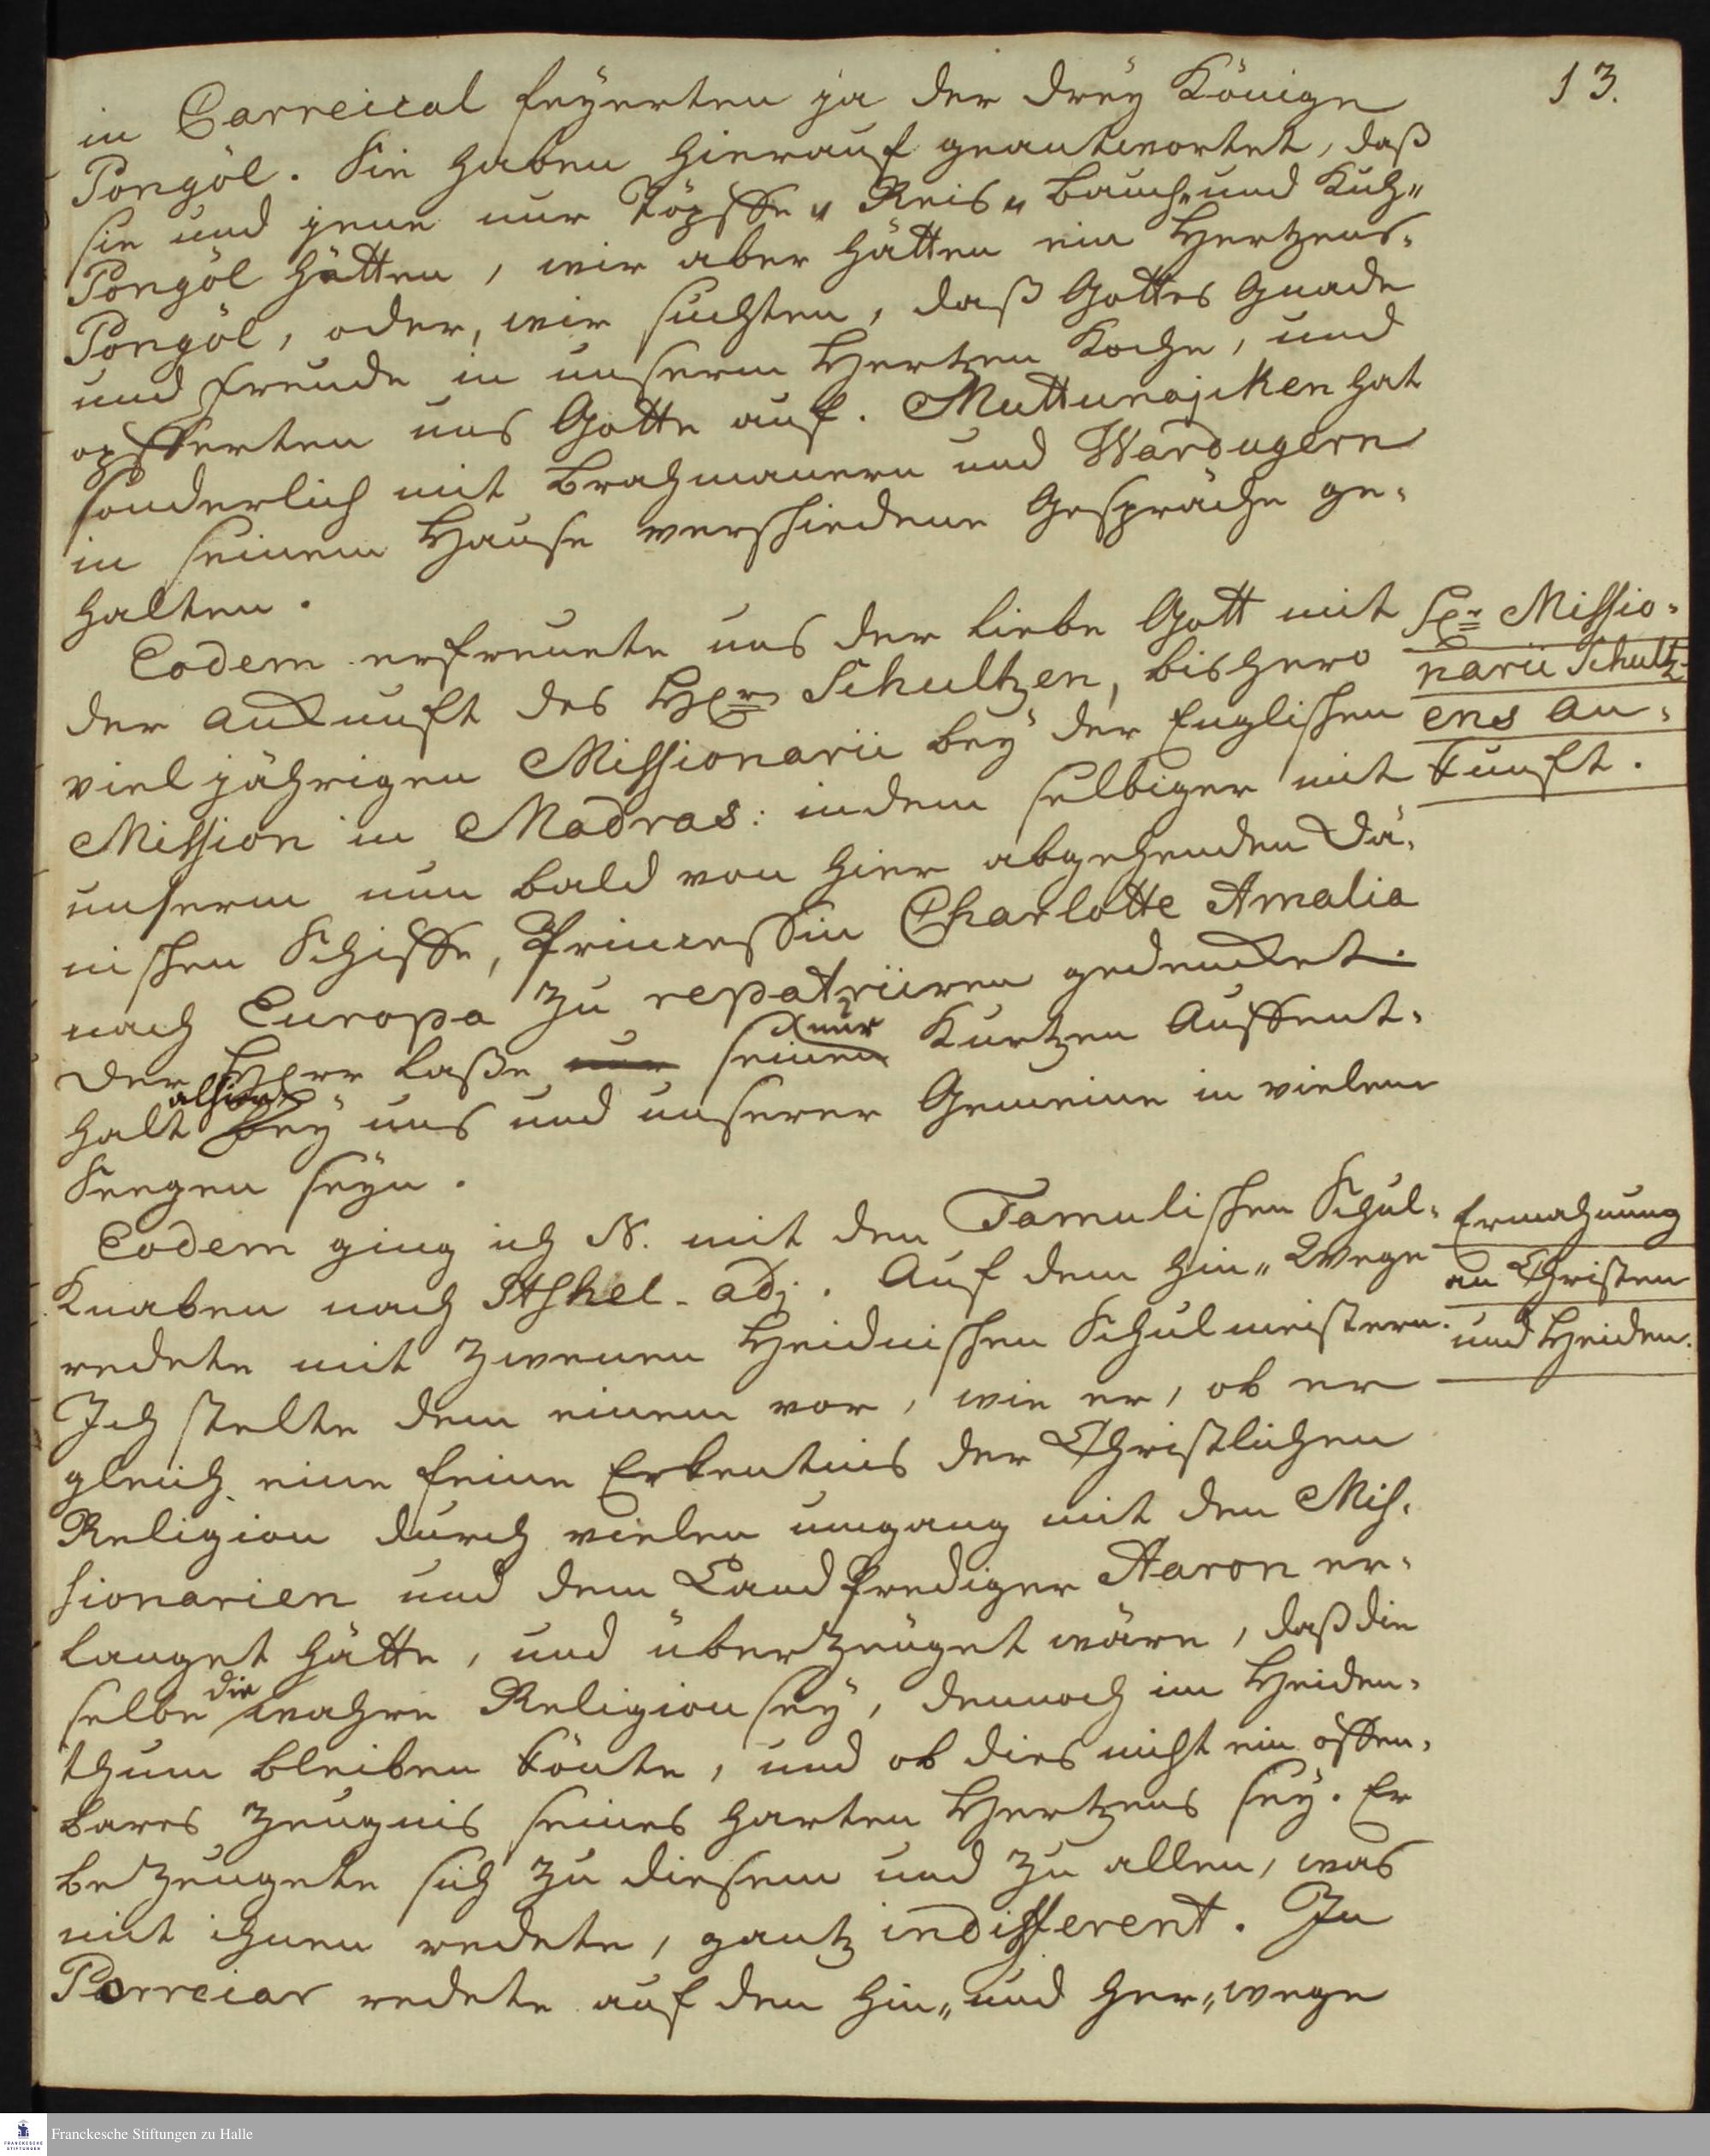 13.
in Carreical feÿerten ja der dreÿ Könige
Pongöl. Sie haben hierauf geantwortet, daß
sie und jene nur Töpffe„ Reis„ Bauch„ und Kuh„
Pongöl hätten, wir aber hätten ein Hertzens-
Pongöl, oder, wir suchten, daß Gottes Gnade
und Freude in unserm Hertzen koche, und
opfferten uns Gotte auf. Muttunajcken hat
sonderlich mit Brahmanern und Wardugern
in seinem Hause verschiedene Gespräche ge-
halten.
Eodem erfreuete uns der liebe Gott mit
der Ankunft des HErrn Schultzen, bishero
vieljährigen Missionarii beÿ der Englischen
Mission in Madras: indem selbiger mit
unserm nun bald von hier abgehenden Dä-
nischen Schiffe, Princessin Charlotte Amalia
nach Europa zu repatriiren gedencket.
Der HErr laße nur seinen nur kurtzen Auffent-
halt alhier beÿ uns und unserer Gemeine in vielem
Seegen seÿn.
Eodem ging ich N. mit den Tamulischen Schul-
Knaben nach Sthkel-adj. Auf dem Hin„ Wege
redete mit zweenen Heidnischen Schulmeistern.
Ich stelte dem einem vor, wie er, ob er
gleich eine feine Erkentnis der Christlichen
Religion durch vielen umgang mit den Mis-
sionarien und dem Land Prediger Aaron er-
langet hätte, und überzeuget wäre, daß die
selbe die wahre Religion seÿ, dennoch im Heiden-
thum bleiben könte, und ob dies nicht ein offen-
bares Zeugnis seines harten Hertzens seÿ. Er
bezeugete sich zu diesem und zu allen, was
mit ihnen redete, gantz indifferent. In
Porreiar redete auf den Hin„ und Her„ wege
HEr Missio-
narii Schultz-
ens An-
kunft.
Ermahnung
an Christen
und Heiden.
Franckesche Stiftungen zu Halle